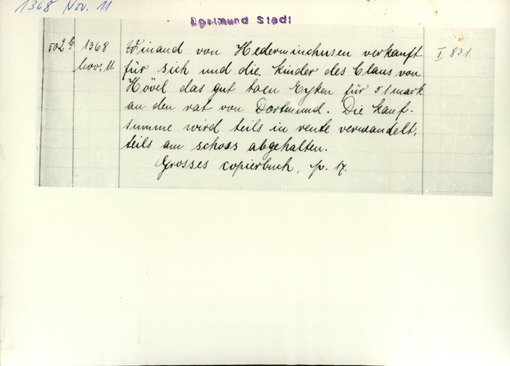 1368 Nov. 11
Dortmund Stadt
502b 1368 Nov. 11 Winand von Hederminchusen verkauft I 831.
für sich und die kinder des Claus von
Hövel das gut toen Eyken für 51 mark
an den rat von Dortmund. Die kauf-
summe wird teils in rente verwandelt,
teils am schoss abgehalten.
Grosses copierbuch, p. 17.